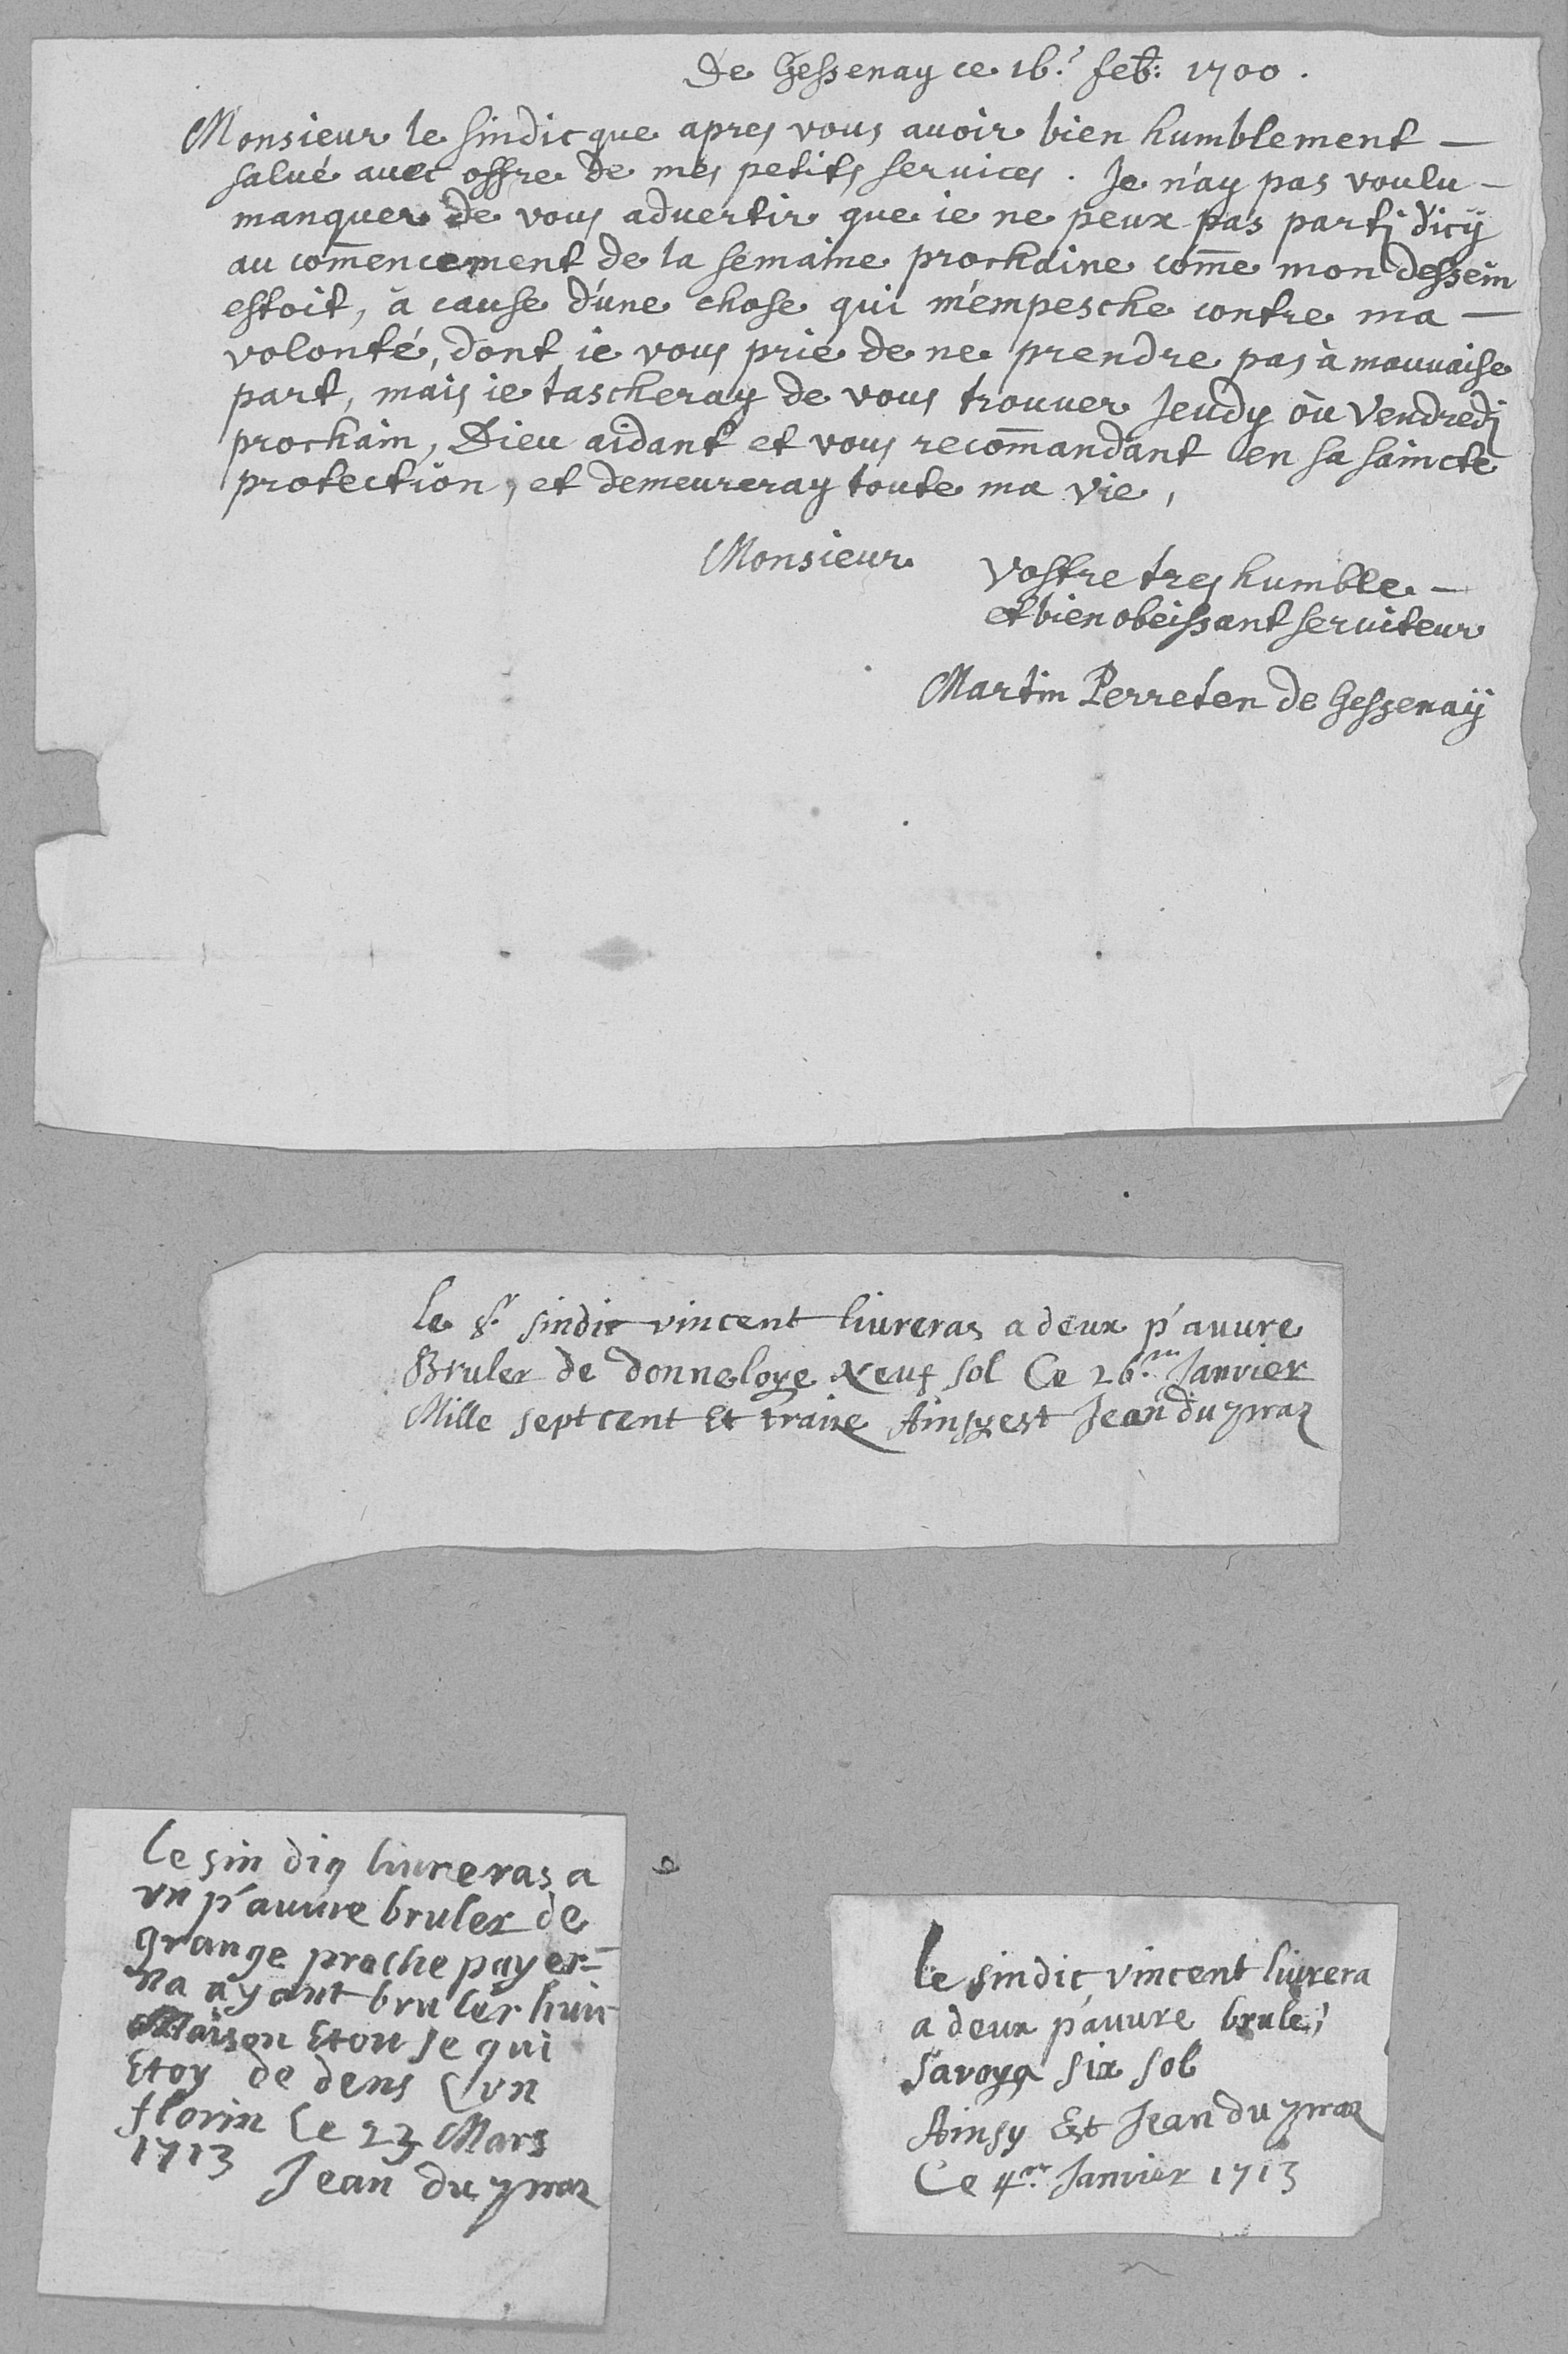 De Gessenay ce 16.e feb: 1700.
Monsieur le sindic que apres vous auoir bien humblement —
salué auec offre de mes petits seruices. Je n'ay pas voulu —
manquer de vous aduertir que ie ne peux pas partj d'icÿ
au com̄encement de la semaine prochaine com̄e mon dessein
estoit, à cause d'une chose qui m'empesche contre ma —
volonté, dont ie vous prie de ne prendre pas à mauuaise
part, mais ie tascheray de vous trouuer Jeudy où Vendredj
prochain, Dieu aidant et vous recom̄andant en sa saincte
protection, et demeureray toute ma vie,
Monsieur
Vostre tres humble —
et bien obeissant seruiteur
Martin Perreten de Gessenaÿ
le Sr sindic vincent liureras a deux p'auure
Bruler de donneloye Neuf sol Ce 26.m Janvier
Mille sept cent Et traise Ainsy est Jean du
Le sin diq liureras a
vn p'auure bruler de
grange proche payer=
na ayant bruler huit
Maison Et tou se qui
Etoy de dens vn
florin Le 23 Mars
1713 Jean du
le sindic vincent liurera
a deux p'auure brule,
Savoya six sol
Ainsy Est Jean du
Ce 4me Janvier 1713